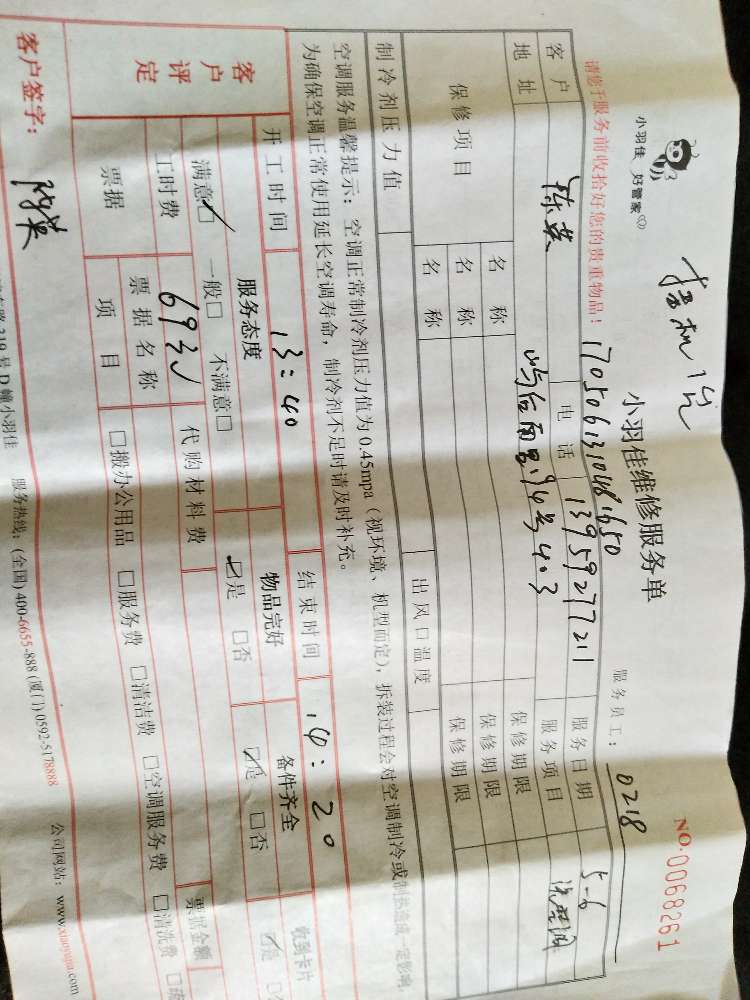 小羽佳 好管家
小羽佳维修服务单
NO:0068261
1705061310481650
服务员工: 0218
请您于服务前收拾好您的贵重物品!
客户 陈英 电话 13959277211 服务日期 5-6
地址 后面 403 服务项目 洗空调
保修项目 名称 保修期限
名称 保修期限
名称 保修期限
制冷剂压力值 出风口温度
空调服务温馨提示: 空调正常制冷剂压力值为0.45mpa (视环境、机型而定), 拆装过程会对空调制冷或制热造成一定影响,
为确保空调正常使用延长空调寿命, 制冷剂不足时请及时补充。
开工时间 13:40 结束时间 14:20
客户评定 服务态度 物品完好 备件齐全 收到卡片
满意☑ 一般□ 不满意□ ☑是 □否 ☑是 □否 ☑是
工时费 69 代购材料费
票据 票据名称 票据金额
项目 □搬办公用品 □服务费 □清洁费 □空调服务费 □清洗费
客户签字: 陈英
219号D幢小羽佳 服务热线: (全国) 400-6655-888 (厦门) 0592-5178888 公司网站: www.xiaoyujia.com